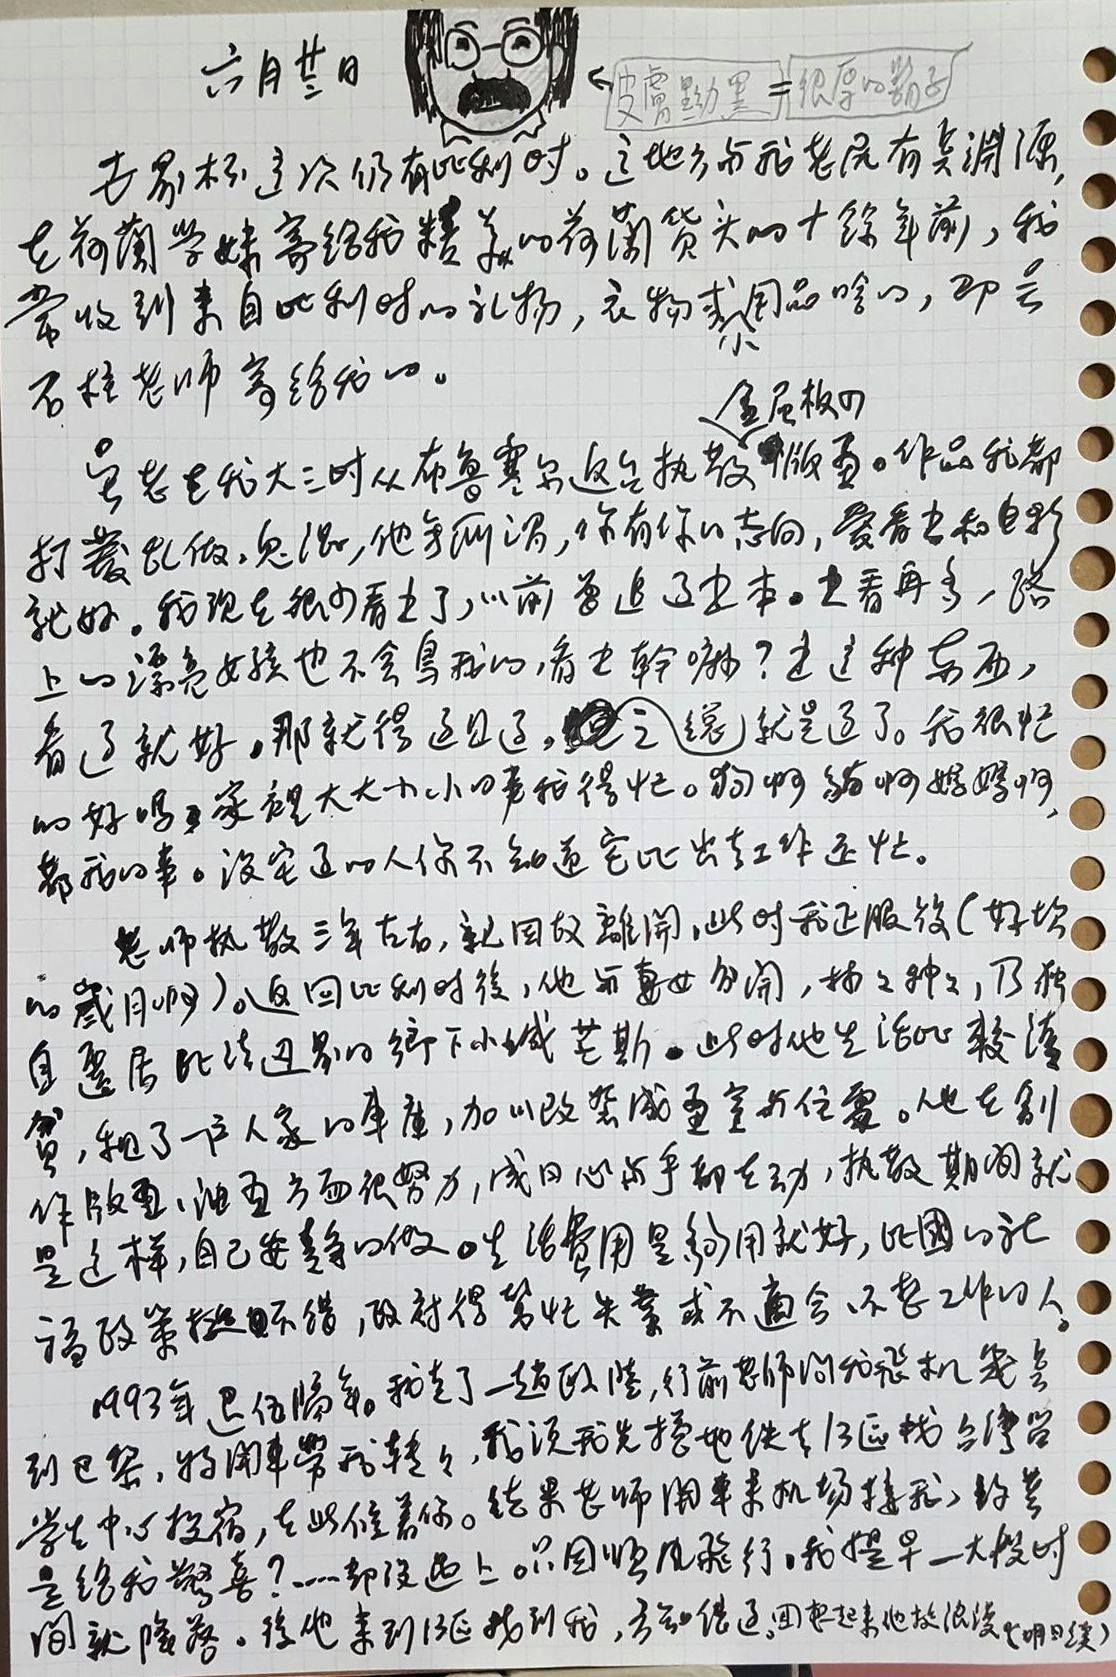 六月廿三日
皮膚黝黑＝很厚的鬍子
世界杯這次仍有比利时。這地方与我老師有点淵源，
在荷蘭学妹寄給我精美的荷蘭貨头的十餘年前，我
常收到来自比利时的礼物，衣物或小用品啥的，即吳
石柱老师寄給我的。
金屈板的
吳老在我大三时从布魯塞尔返台执教版画。作品我都
打發乱做、鬼混，他無所谓，你有你的志向，爱看书和电影
就好。我現在很少看书了，以前曾追过书本。书看再多，路
上的漂亮女孩也不会鳥我的，看书幹嘛？书這种东西，
看过就好。那就得过且过。总之就是过了。我很忙
的好吗？家裡大大小小的事我得忙。狗啊貓啊媽媽啊，
都我的事。沒宅过的人你不知道宅比出去工作还忙。
老师执教三年左右，就因故離開，此时我正服役（好坎
的歲月啊）。返回比利时後，他与妻女分開，种之种之，乃独
自遷居比法边界的鄉下小城芒斯。此时他生活比較清
貧，租了一户人家的車庫，加以改裝成画室与住處。他在創
作版画、油画方面很努力，成日心与手都在动，执教期间就
是这样，自己安静的做。生活費用是夠用就好，比國的社
福政策挺不错，政府得幫忙失業或不適合、不想工作的人。
1993年退伍隔年。我去了一趟欧陸，行前老师问我飛机幾点
到巴黎，将開車帶我轉轉，我说我先搭地铁去13區找台灣留
学生中心投宿，在此候着你。結果老师開車来机场接我，约莫
是給我驚喜？……却没遇上。只因順風飛行。我提早一大段时
间就降落。後他来到13區找到我，方知错过。回想起来他故浪漫（明日续）